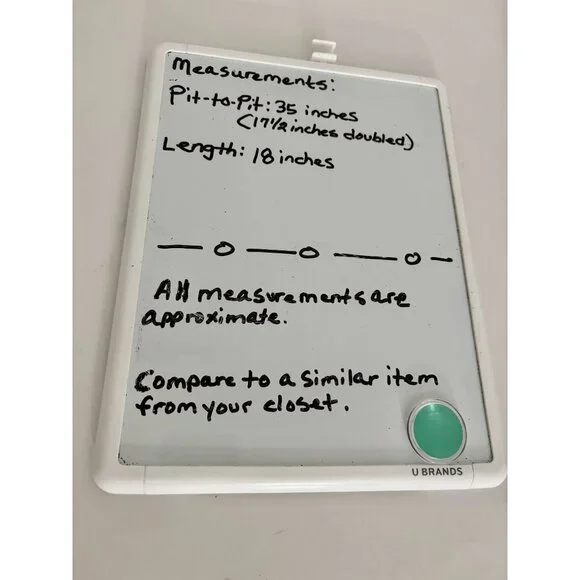 Measurements:
Pit-to-Pit: 35 inches
(17 1/2 inches doubled)
Length: 18 inches
All measurements are
approximate.
Compare to a similar item
from your closet.
U BRANDS